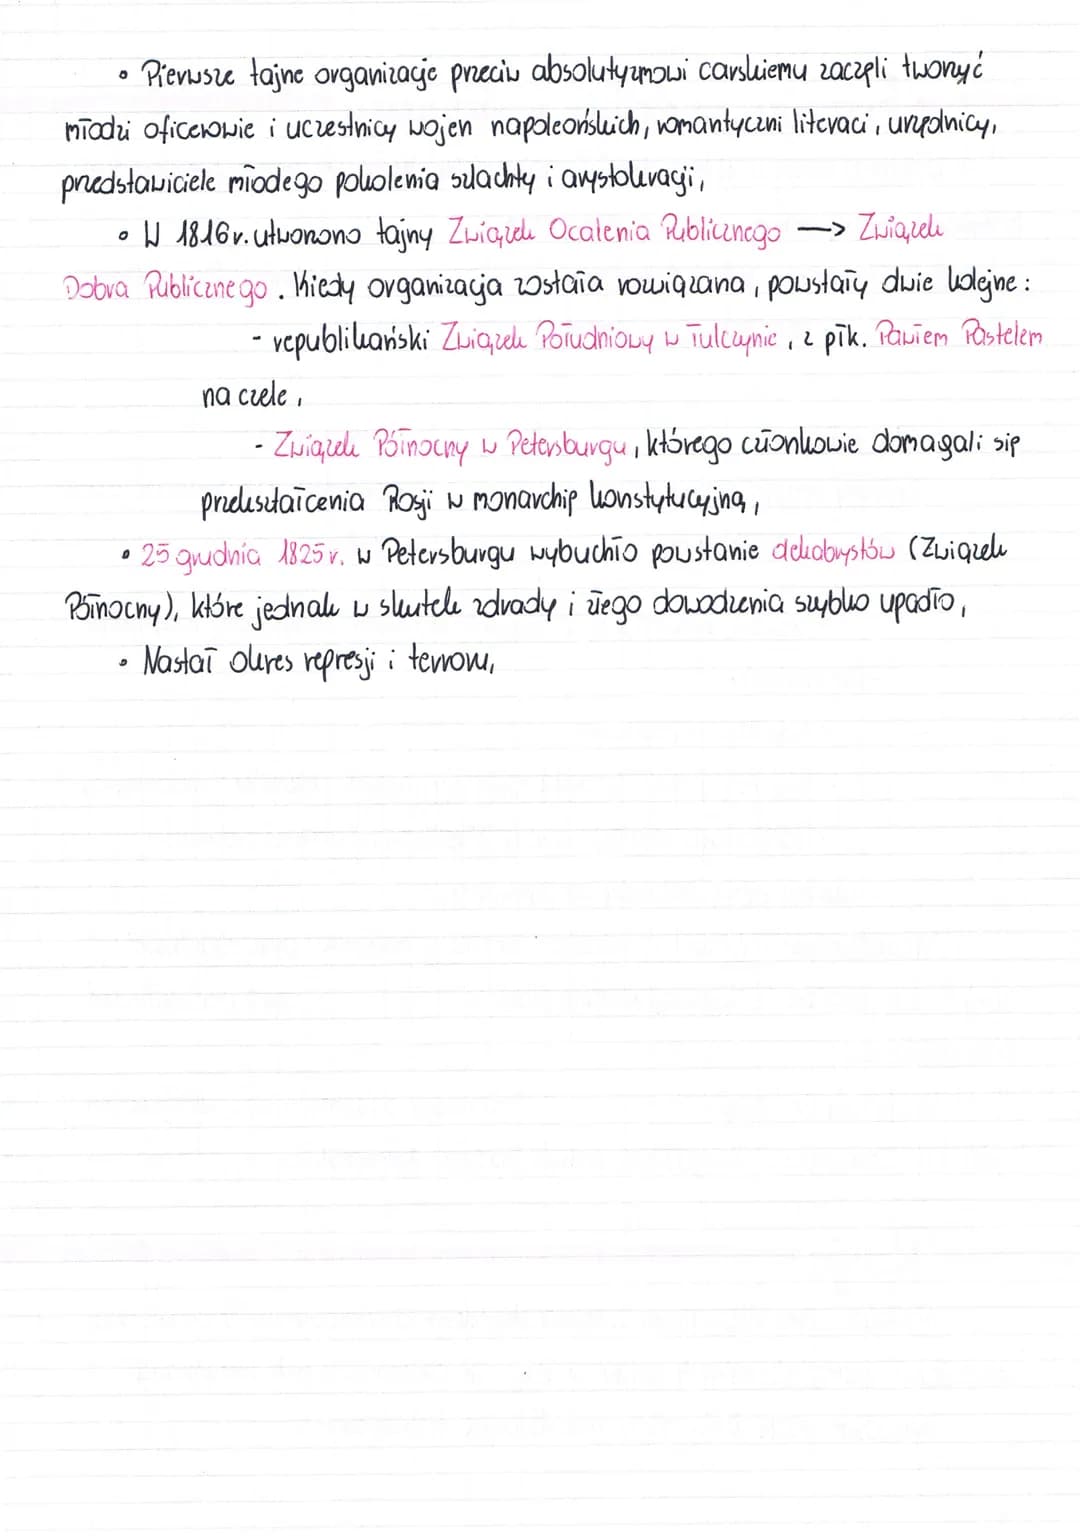 • Pierwsze tajne organizacje przeciw absolutyzmowi carskiemu zaczęli tworzyć
młodzi oficerowie i uczestnicy wojen napoleońskich, romantyczni literaci, urzędnicy,
przedstawiciele młodego pokolenia szlachty i arystokracji,
• W 1816r. utworzono tajny Związek Ocalenia Publicznego —> Związek
Dobra Publicznego. Kiedy organizacja została rozwiązana, powstały dwie kolejne:
- republikański Związek Południowy w Tulczynie, z płk. Pawłem Pastelem
na czele,
- Związek Północny w Petersburgu, którego członkowie domagali się
przekształcenia Rosji w monarchię konstytucyjną,
• 25 grudnia 1825r. w Petersburgu wybuchło powstanie dekabrystów (Związek
Północny), które jednak w skutek zdrady i złego dowodzenia szybko upadło,
• Nastał okres represji i terroru,